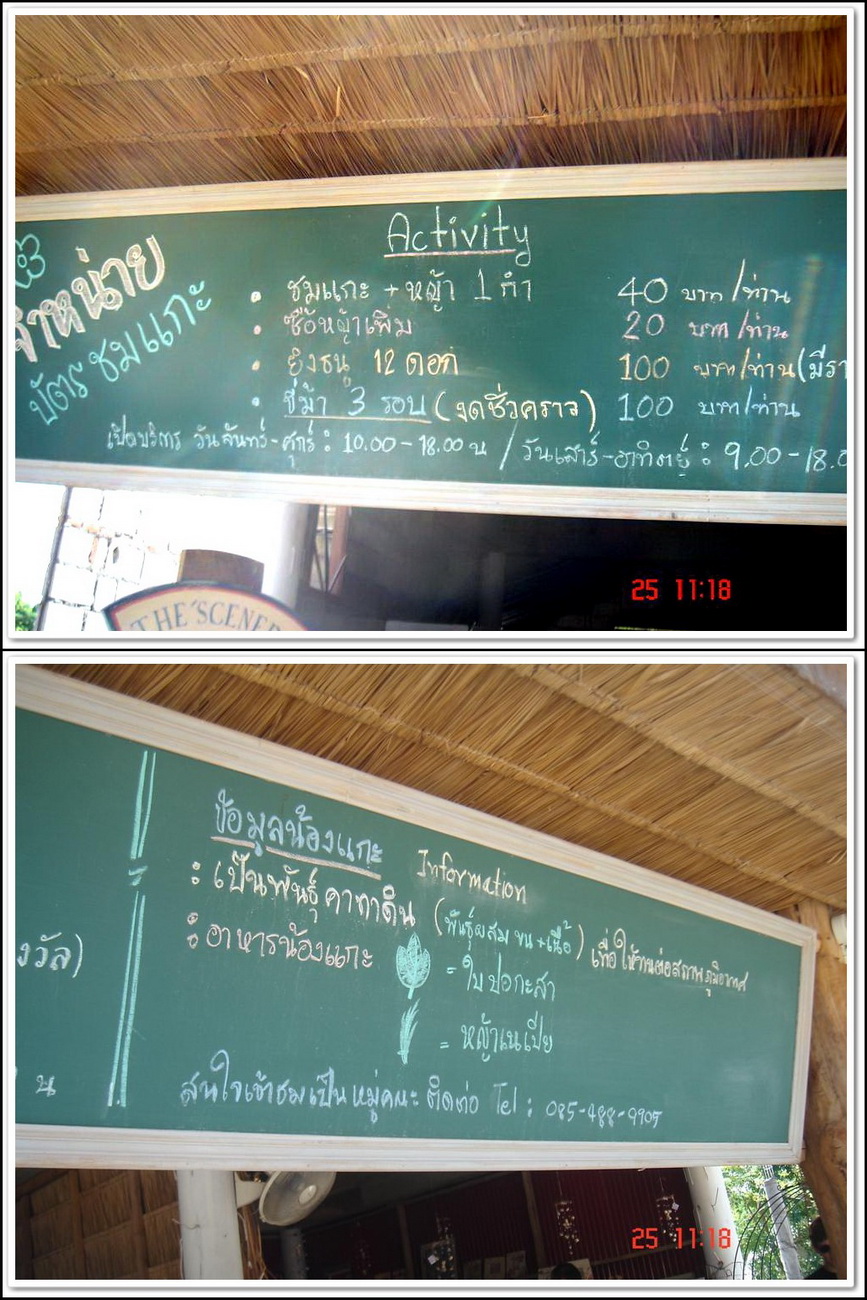 จำหน่าย
บัตรชมแกะ
Activity
• ชมแกะ + หญ้า 1 กำ 40 บาท/ท่าน
• ซื้อหญ้าเพิ่ม 20 บาท/ท่าน
• ยิงธนู 12 ดอก 100 บาท/ท่าน (มีรา
• ขี่ม้า 3 รอบ (งดชั่วคราว) 100 บาท/ท่าน
เปิดบริการ วันจันทร์-ศุกร์ : 10.00-18.00 น / วันเสาร์-อาทิตย์ : 9.00-18.0
THE SCENER
25 11:18
งวัล)
น
ข้อมูลน้องแกะ Information
: เป็นพันธุ์คาทาดิน (พันธุ์ผสม ขน+เนื้อ) เพื่อให้ทนต่อสภาพภูมิอากาศ
: อาหารน้องแกะ = ใบปอกะสา
= หญ้าเนเปีย
สนใจเข้าชมเป็นหมู่คณะ ติดต่อ Tel : 085-488-9905
25 11:18